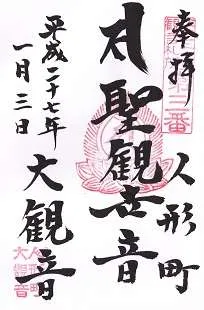 奉拝
人形町
大聖観世音
平成二十七年
一月三日
大観音
人形町
大観音